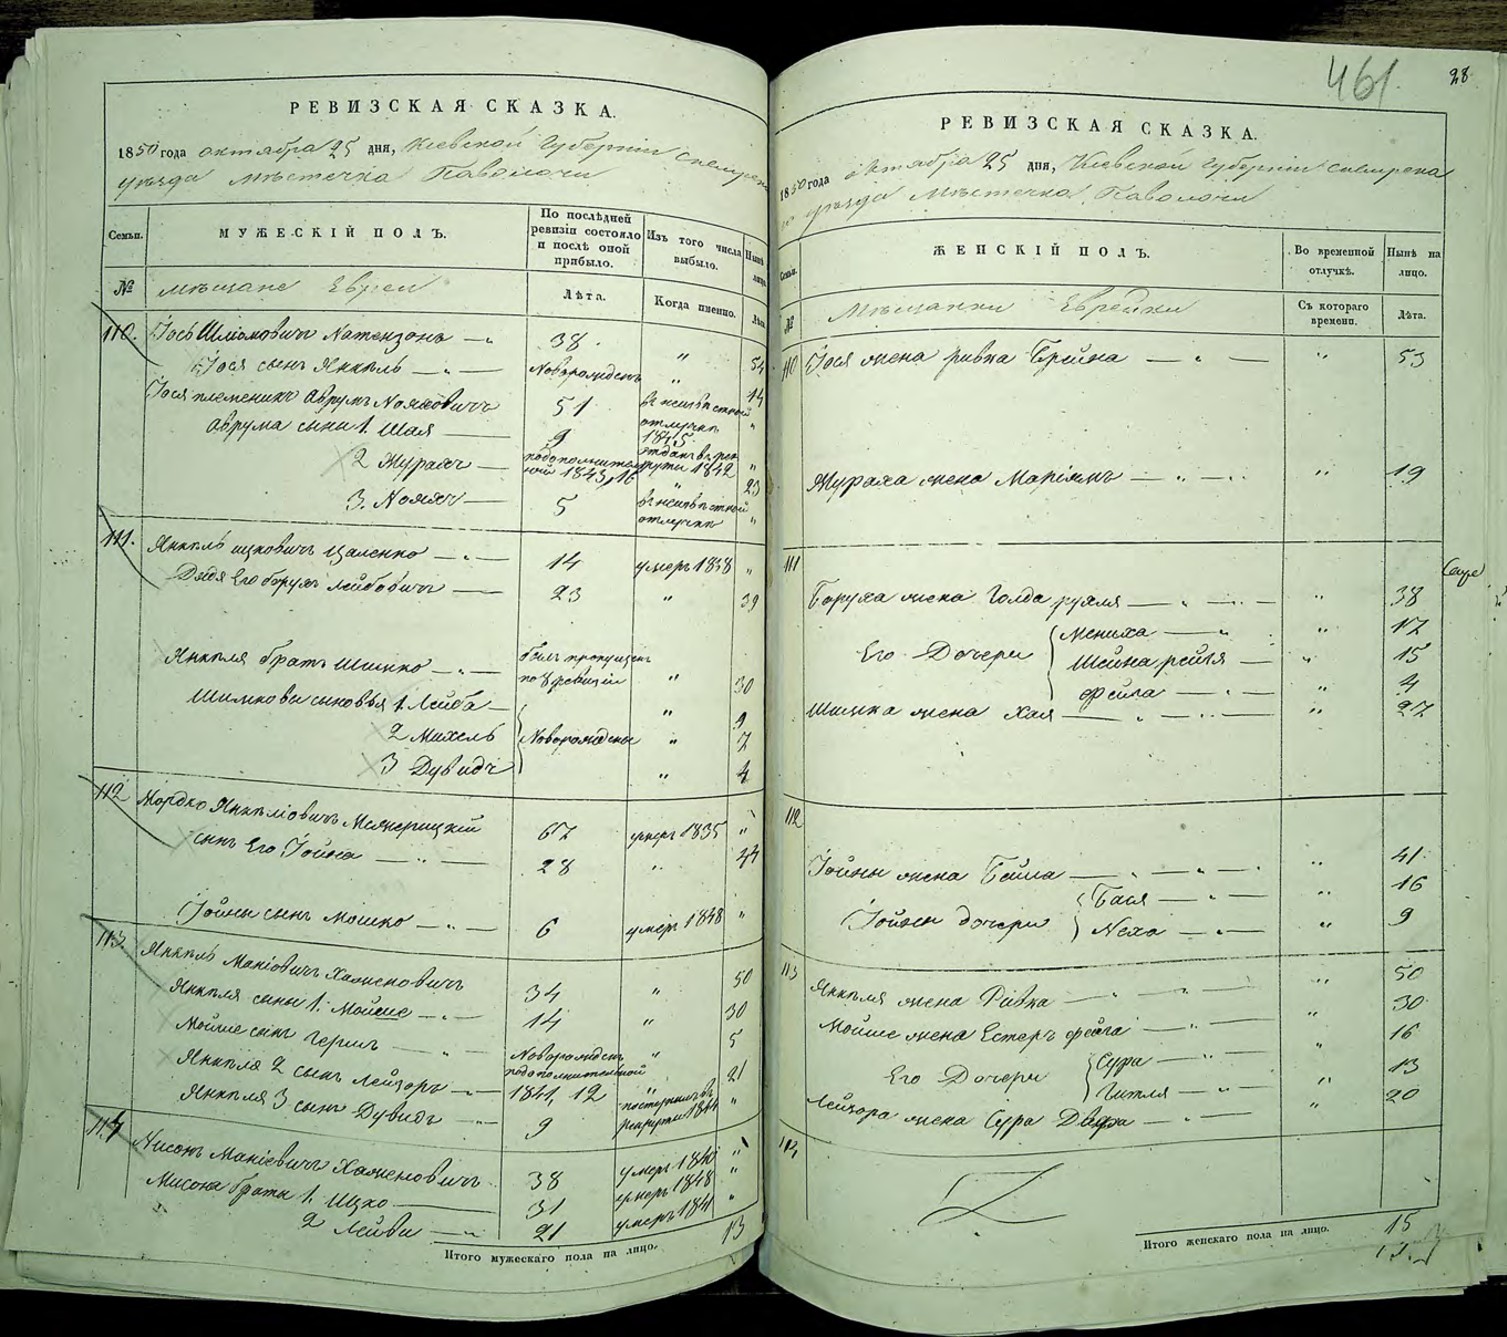 РЕВИЗСКАЯ СКАЗКА.
1850 года октября 25 дня, Киевской Губернии
уезда Мѣстечка Паволочи
Семьи.
МУЖЕСКІЙ ПОЛЪ.
По послѣдней ревизіи состояло и послѣ оной прибыло.
Изъ того числа выбыло.
Нынѣ
№
Мѣщане Евреи
Лѣта.
Когда именно.
Лѣта
110. Іось Шліомовичъ Натензонъ 38 "
54
Іося сынъ Янкель Новорожденъ "
14
Іося племеникъ Аврумъ Новорожденъ
51 въ неизвѣстной отлучкѣ 1845 "
Аврума сыны 1. Шая 9 отданъ въ рек
руты 1842 "
2 Мурахъ по дополнитель
ной 1843, 16 " 23
3. 5 въ неизвѣстной отлучкѣ "
111. Янкель Ицковичъ Цаленко 14 умеръ 1838 "
Дядя Его Борухъ Лейбовичъ 23 " 39
Янкеля братъ Шимко былъ пропущенъ
по 8 ревизіи " 30
Шимковы сыновья 1. Лейба " 9
2 Михель Новорожденые " 7
3 Дувидъ " 4
112 Мордко Янкеліовичъ Межерицкій 67 умеръ 1835 "
сынъ Его Іойна 28 " 44
Іойны сынъ Мошко 6 умеръ 1848 "
113. Янкель Маніовичъ Хаженовичъ 34 " 50
Янкеля сыны 1. Мойше 14 " 30
Мойше сынъ Гершъ Новорожденъ " 5
Янкеля 2 сынъ Лейзоръ по дополнительной
1841, 12 " 21
Янкеля 3 сынъ Дувидъ 9 рекруты 1844 "
114 Нисонъ Маніевичъ Хаженовичъ 38 умеръ 1840 "
Нисона браты 1. Ицко 31 умеръ 1848 "
2 Лейви 21 умеръ 1841 "
Итого мужескаго пола на лицо. 13
461
28
РЕВИЗСКАЯ СКАЗКА.
1850 года октября 25 дня, Киевской Губернии
уезда Мѣстечка Паволочи
Семьи.
ЖЕНСКІЙ ПОЛЪ.
Во временной отлучкѣ.
Нынѣ на лицо.
№
Мѣщанки Еврейки
Съ котораго времени.
Лѣта.
110 Іося жена Ривка Брейна " 53
Мураха жена Маріямъ " 19
111
Боруха жена Голда Рухля " 38
Его Дочери Мениха " 17
Шейна Рейзя " 15
Фейга " 4
Шимка жена Хая " 27
112
Іойны жена Бейла " 41
Іойны дочери Бася " 16
Неха " 9
113 Янкеля жена Ривка " 50
Мойше жена Естеръ Фейга " 30
Его Дочери Сура " 16
Гитля " 13
Лейзора жена Сура Двойра " 20
114
Итого женскаго пола на лицо. 15